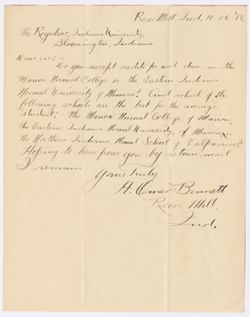 Rose Mill, Ind. 10-25-
The Registrar, Indiana University,
Bloomington, Indiana
Dear sir:
Do you accept credits for work done in the
Marion Normal College or the Eastern Indiana
Normal University of Muncie? And which of the
following schools are the best for the average
student: The Marion Normal College of Marion,
the Eastern Indiana Normal University, of Muncie, or
the Northern Indiana Normal School of Valparaiso?
Hoping to hear from you by return mail
I remain
Yours Truly
H. Omer Bennett
Rose Mill,
Ind.